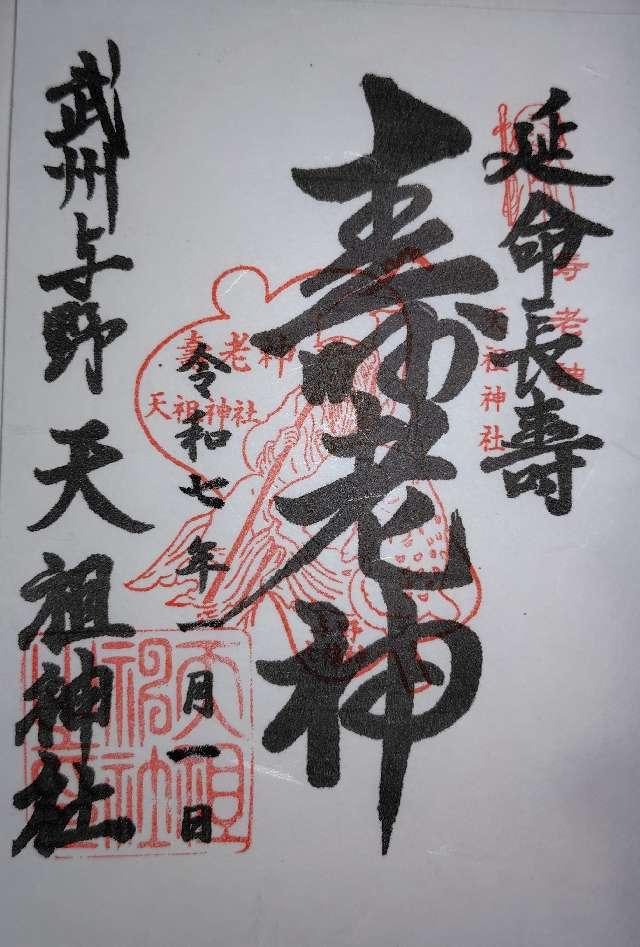 延命長壽
寿老神
天祖神社
壽老神
令和七年一月一日
壽老神
天祖神社
武州与野天祖神社
天祖神社